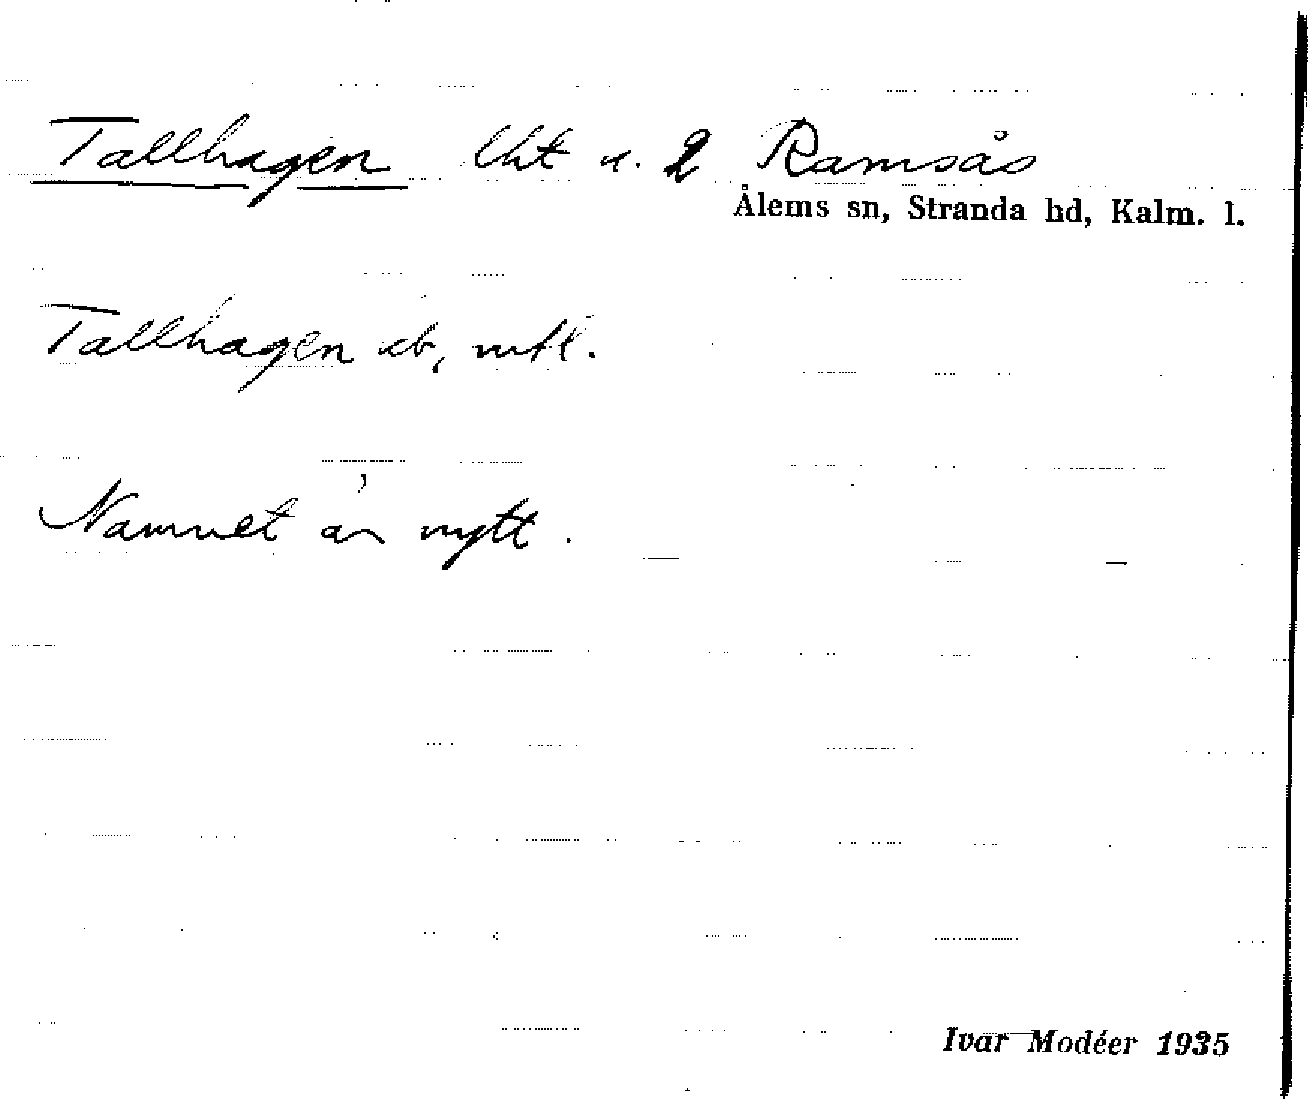 Tallhagen lht u. 2 Ramsås
Ålems sn, Stranda hd, Kalm. l.
Tallhagen ab, mtl.
Namnet är nytt.
Ivar Modéer 1935